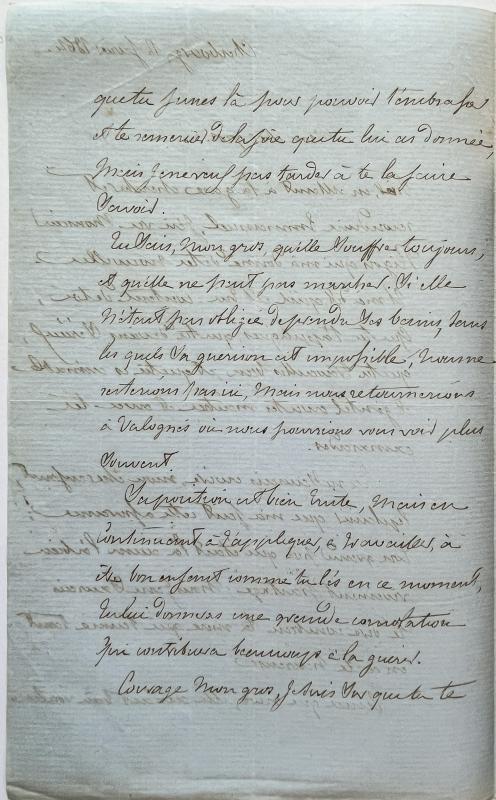 que tu funes là pour pouvoir t'embrasser
et te remercier de la joie que tu lui as donnée,
mais je ne veux pas tarder à te la faire
savoir.
Tu sais, mon gros, qu'elle souffre toujours,
et qu'elle ne peut pas marcher. Si elle
n'était pas obligée de prendre ses bains, sans
lesquels sa guérison est impossible, nous ne
resterions pas ici, mais nous retournerions
à Valognes où nous pourrions vous voir plus
souvent.
Sa position est bien triste, mais en
continuant à t'appliquer, à travailler, à
être bon enfant comme tu l'es en ce moment,
tu lui donneras une grande consolation
qui contribuera beaucoup à la guérir.
Courage mon gros, je suis sûr que tu te